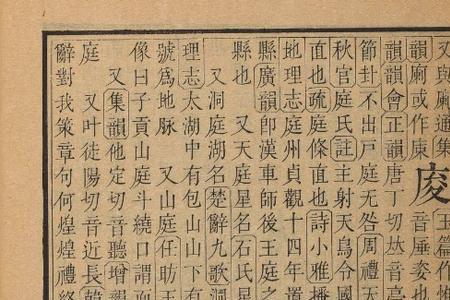 又與廟通集
玉篇作
韻廟或作庿
韻韻會正韻唐丁切𠀤音亭
節卦不出戸庭无咎周禮天
秋官庭氏註主射天鳥令國
直也疏庭條直也詩小雅播
地理志庭州貞觀十四年置
縣廣韻卽漢車師後王庭之
縣也 又天庭星名石氏星
又洞庭湖名楚辭九歌洞
理志太湖中有包山山下有
號爲地脉 又山庭任昉王
像曰子貢山庭斗繞口謂面
又集韻他定切音聽增韻
庭 又叶徒陽切音近長韓
辭對我策章句何煌煌禮終